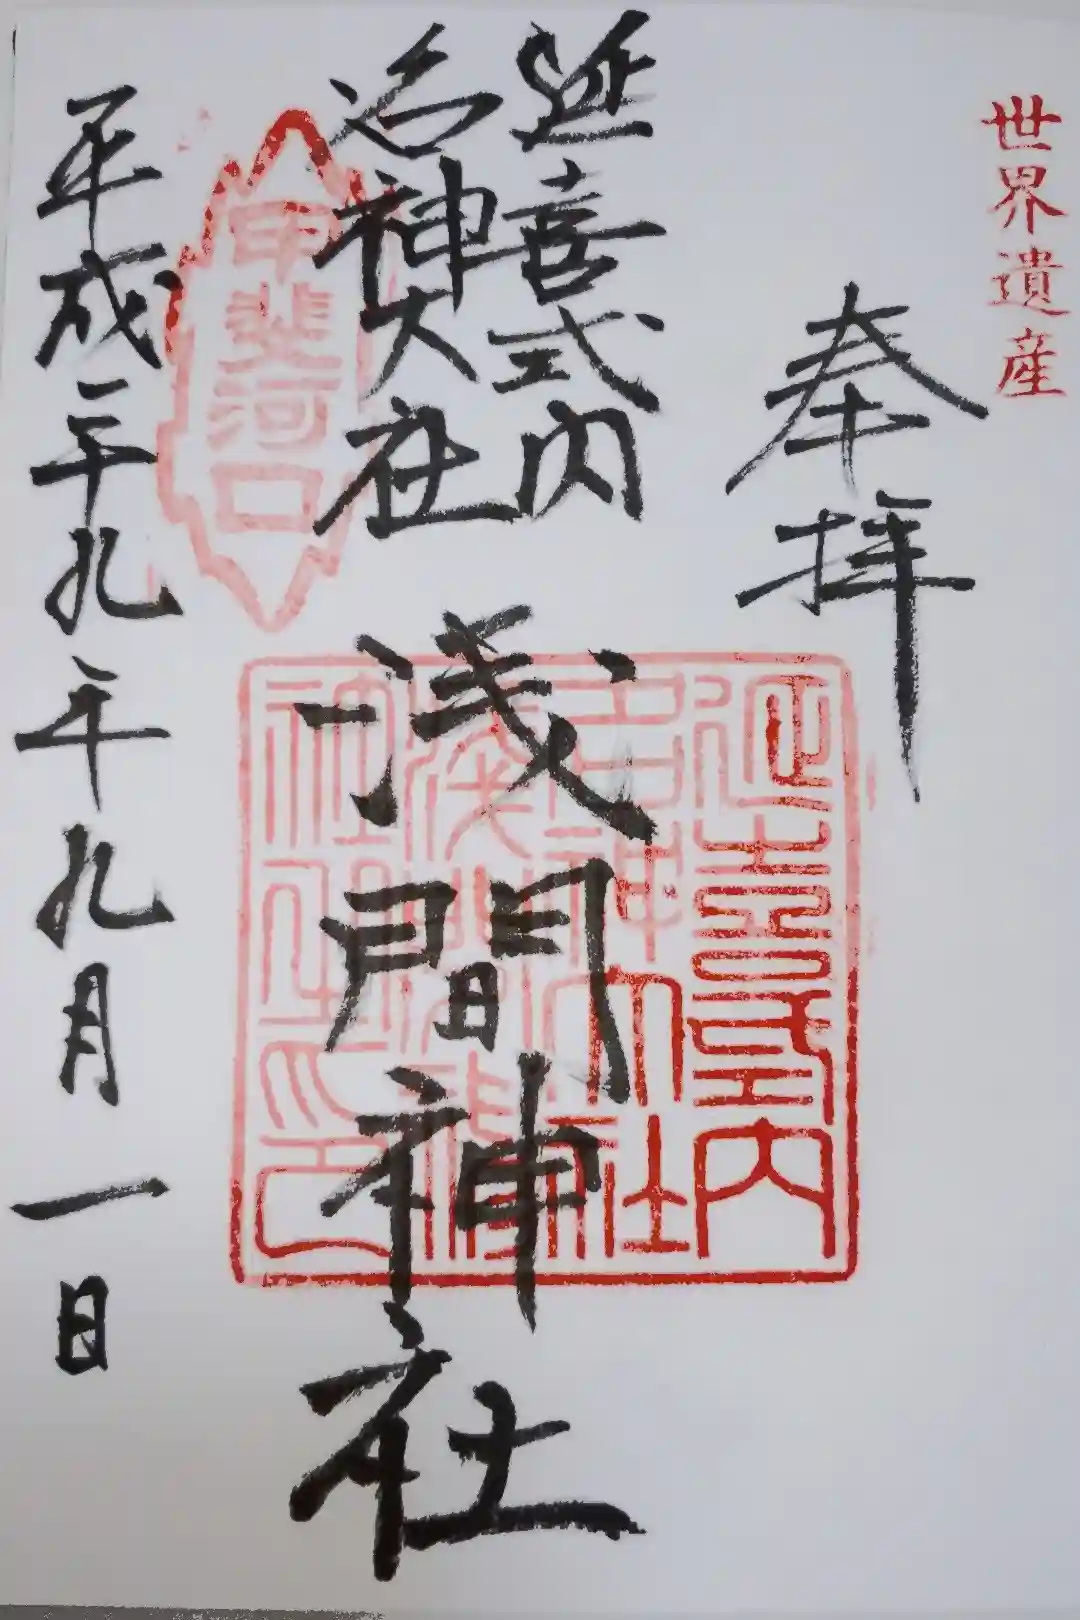 世界遺産
奉拝
延喜式内
名神大社
浅間神社
甲斐河口
延喜式内
名神大社
平成二十九年九月一日